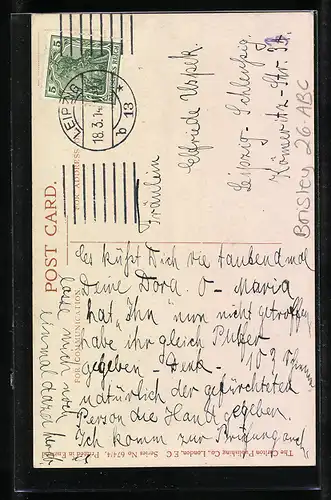 POST CARD.
FOR COMMUNICATION
FOR ADDRESS
5
5
LEIPZIG
18.3.14
* b 13
Fräulein
Elfriede Uspek.
Leipzig-Schleußig.
Könneritz-Str.
Bristley 26. ABC
Es küßt Dich vie tausendmal
Deine Dora. O - Maria
hat "Ihn" nun nicht getroffen
habe ihr gleich
gegeben - Denk -
natürlich der gefürchteten
Person die Hand gegeben.
Ich komm zur Prüfung auch
mich noch
einmal
The Carlton Publishing Co., London, E.C. Series No 674/4. Printed in